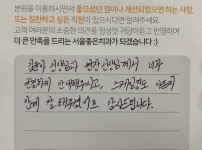 본원을 이용하시면서 좋으셨던 점이나 개선되었으면 하는 사항,
또는 칭찬하고 싶은 직원이 있으시다면 알려주세요.
고객 여러분의 소중한 의견을 정성껏 귀담아듣고 반영하여
더 큰 만족을 드리는 서울좋은치과가 되겠습니다 :)
선생님과 원장선생님께서 너무
친절하게 안내해주시고, 스케일링도 아프지
않게 잘 해주셨어요 감사드립니다.